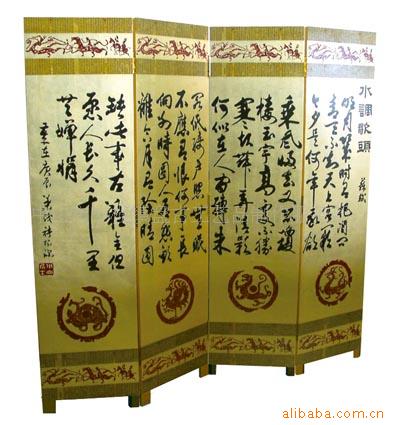 水調歌頭
蘇軾
明月幾時有把酒問
青天不知天上宮闕
今夕是何年我欲
乘風歸去又恐瓊
樓玉宇高處不勝
寒起舞弄清影
何似在人間轉朱
閣低綺戶照無眠
不應有恨何事長
向別時圓人有悲歡
離合月有陰晴圓
缺此事古難全但
願人長久千里
共嬋娟
歲在庚辰
alibaba.com.cn